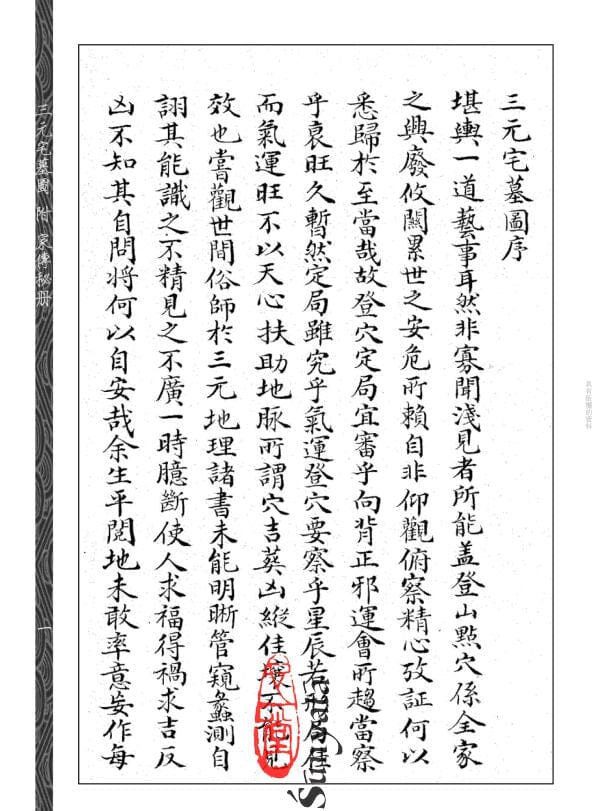 三元宅墓圖序
堪輿一道藝事耳然非寡聞淺見者所能盖登山點穴係全家
之興廢攸關累世之安危所賴自非仰觀俯察精心攷証何以
悉歸於至當哉故登穴定局宜審乎向背正邪運會所趨當察
乎衰旺久暫然定局雖究乎氣運登穴要察乎星辰若形局佳
而氣運旺不以天心扶助地脉所謂穴吉葵凶縱佳壤不能見
效也嘗觀世間俗師於三元地理諸書未能明晰管窺蠡測自
詡其能識之不精見之不廣一時臆斷使人求福得禍求吉反
凶不知其自問將何以自安哉余生平閱地未敢率意妄作每
三元宅墓圖 附 家傳秘册
一
Śūnyatā
具有版權的資料